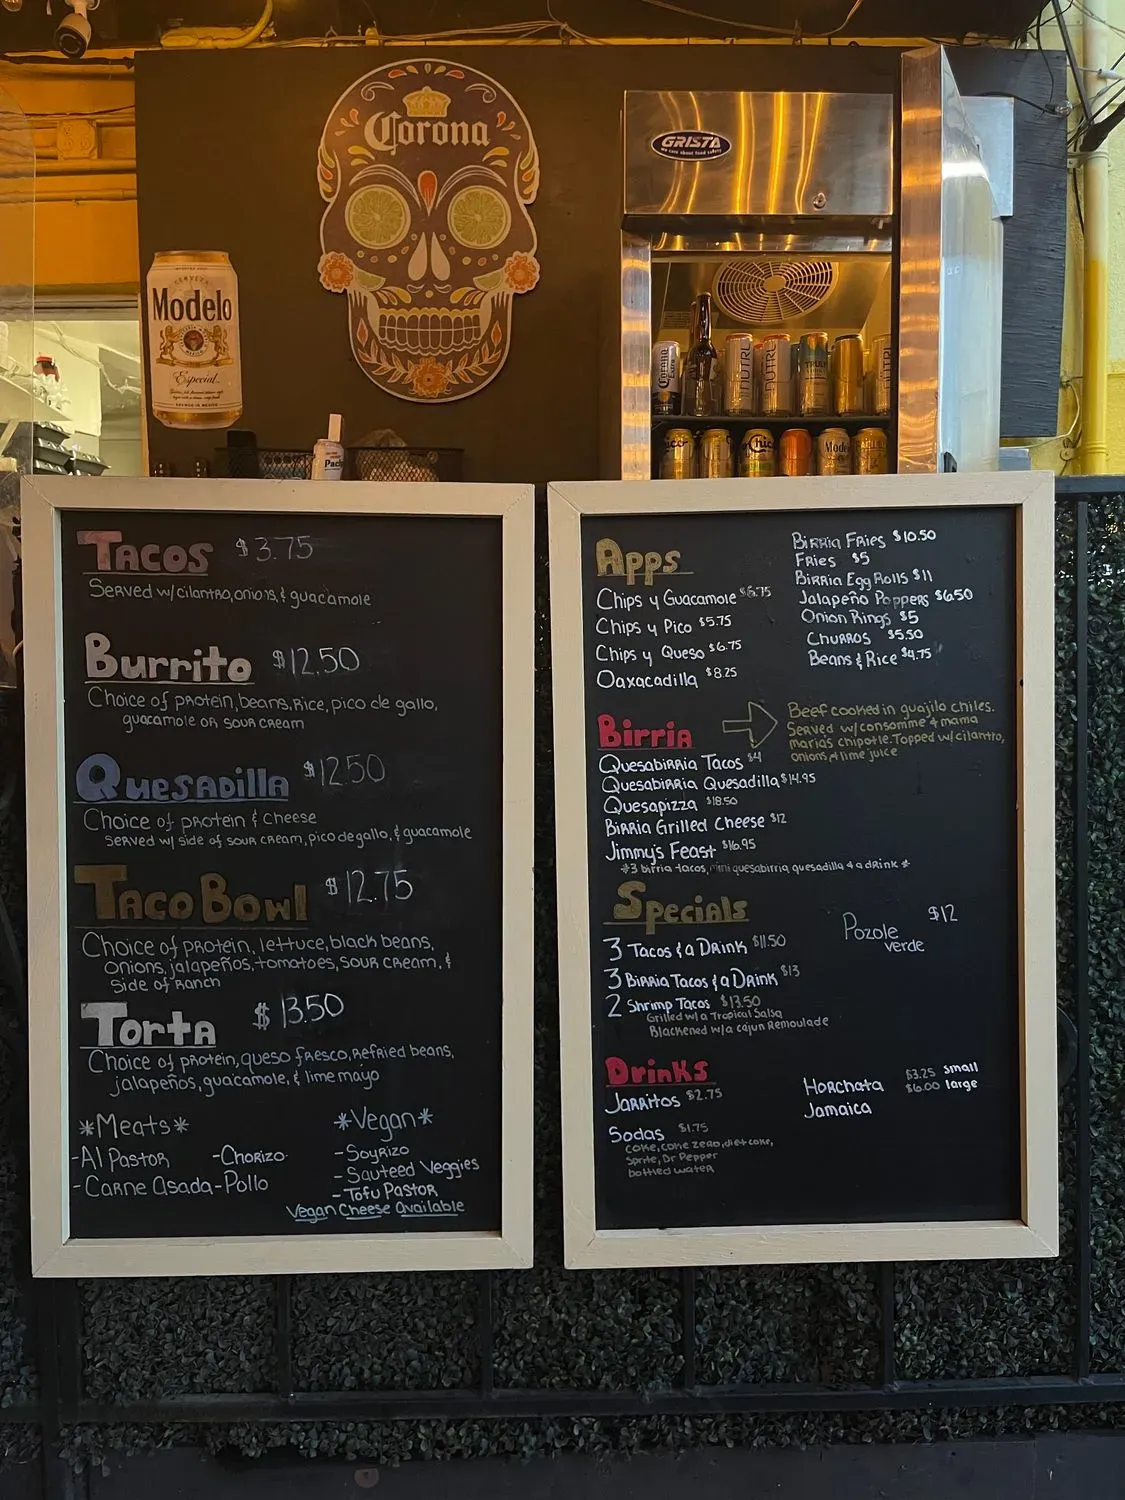 Corona
GRISTA
we care about food safety
CERVEZA
Modelo
Especial
Corona
NUTRL
NUTRL
TRULY
Modelo
TACOS $3.75
Served w/cilantro, onions, & guacamole
Burrito $12.50
Choice of protein, beans, Rice, pico de gallo,
guacamole or sour cream
Quesadilla $12.50
Choice of protein & Cheese
Served w/ side of sour cream, pico de gallo, & guacamole
Taco Bowl $12.75
Choice of protein, lettuce, black beans,
onions, jalapeños, tomatoes, sour cream, &
side of ranch
Torta $13.50
Choice of protein, queso fresco, refried beans,
jalapeños, guacamole, & lime mayo
*Meats*
-Al Pastor -Chorizo
-Carne Asada -Pollo
*Vegan*
-Soyrizo
-Sauteed Veggies
-Tofu Pastor
Vegan Cheese Available
Apps
Chips y Guacamole $6.75
Chips y Pico $5.75
Chips y Queso $6.75
Oaxacadilla $8.25
Birria Fries $10.50
Fries $5
Birria Egg Rolls $11
Jalapeño Poppers $6.50
Onion Rings $5
Churros $5.50
Beans & Rice $4.75
Birria
Beef cooked in guajilo chiles.
Served w/consomme & mama
maria's chipotle. Topped w/ cilantro,
onions & lime juice
Quesabirria Tacos $4
Quesabirria Quesadilla $14.95
Quesapizza $18.50
Birria Grilled Cheese $12
Jimmy's Feast $16.95
*3 birria tacos, mini quesabirria quesadilla & a drink *
Specials
3 Tacos & a Drink $11.50
3 Birria Tacos & a Drink $13
2 Shrimp Tacos $13.50
Grilled w/ a Tropical Salsa
Blackened w/a cajun Remoulade
Pozole $12
verde
Drinks
Jarritos $2.75
Sodas $1.75
coke, coke zero, diet coke,
Sprite, Dr Pepper
bottled water
Horchata $3.25 small
Jamaica $6.00 large